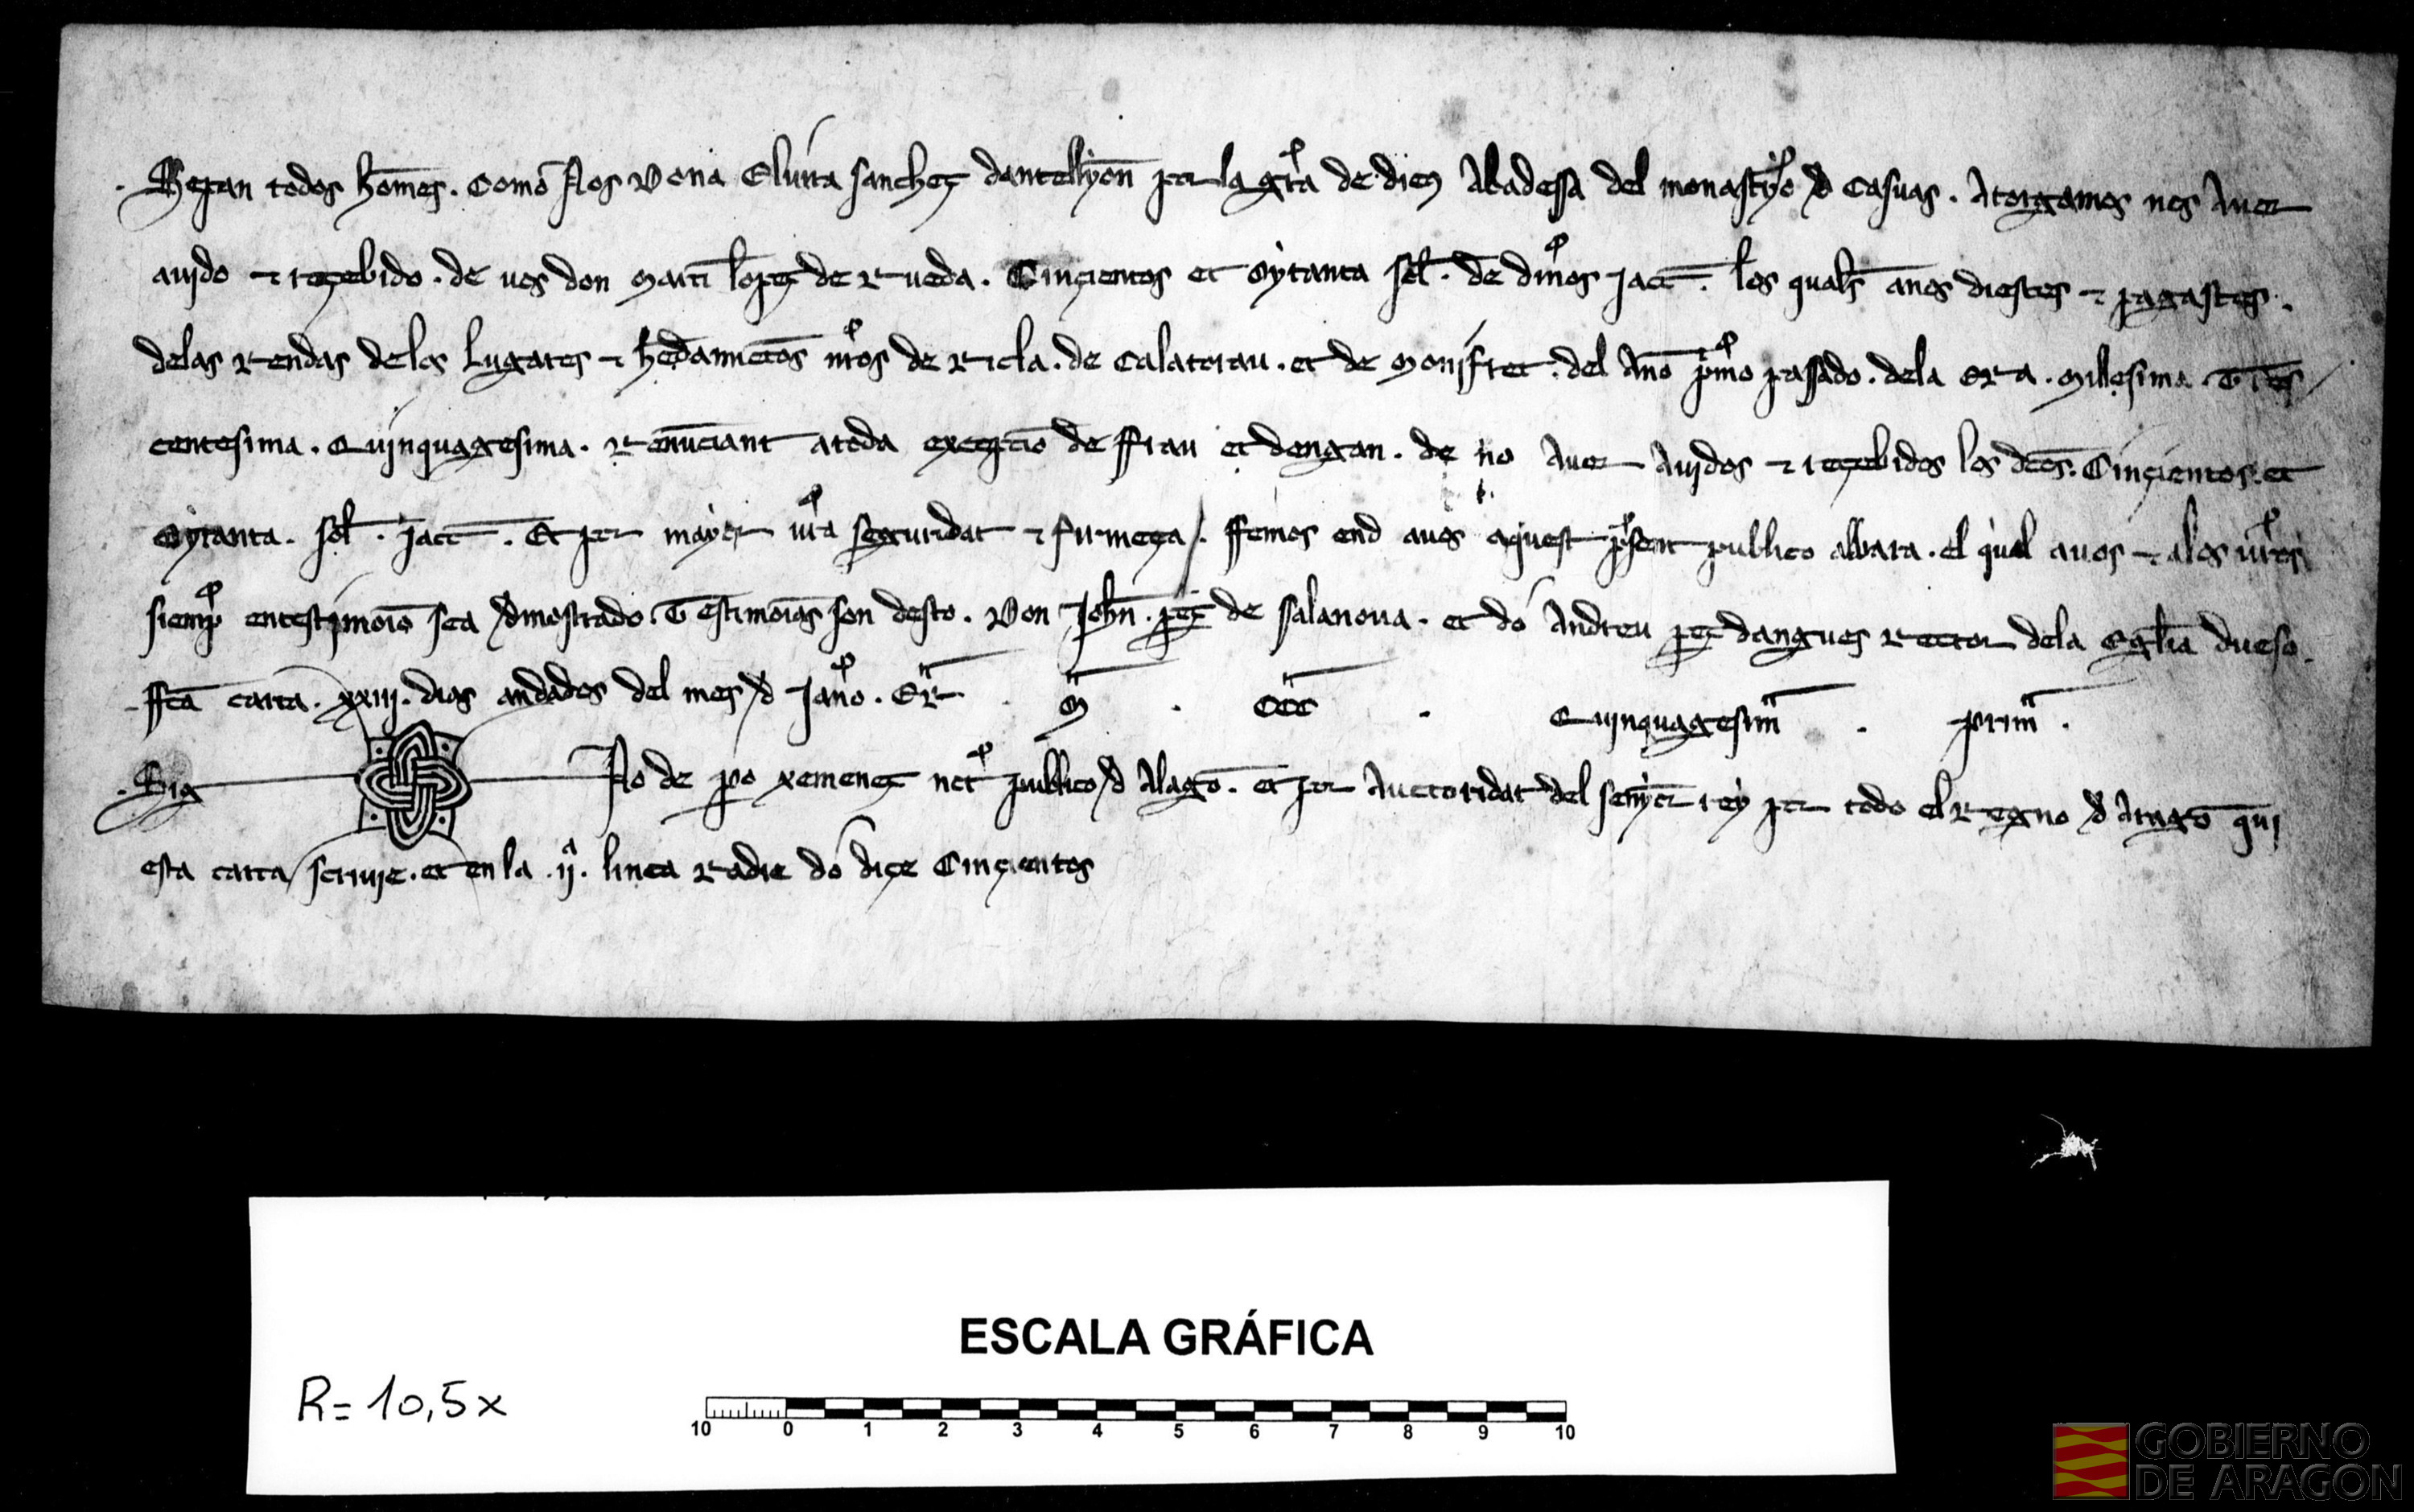 Sepan todos hom̄es. Como Nos Dona Eluira sanchez dantellyon por la gr̄a de dieu Abadessa del monastyo d Casuas. Atorgamos nos Auer
auido et reçebido. de uos don Marti lopez de Rueda. Cinçientos et oytanta sol̄. de dineros jacc̄. los quales anos diestes et pagastes.
delas Rendas delos lugares et hedamietos nr̄os de Ricla. de Calatorau. et de Monifret. del Ano p̄mo passado. dela ERa. Millesima. Tres
centesima. Quinquagesima. Renūciant atoda exceptio de ffrau et dengan. de no Auer Auidos et reçebidos los dc̄os. Cinçientos. et
oytanta. sol̄. jacc̄. Et por mayor ur̄a seguridat et firmeça/. ffemos end auos aquest p̄sent publico albara. el qual auos et alos ur̄os
siemp̄ entestimoīo sea dmostrado. Testimoīas son desto. Don Joh̄n. p̄ez de salanoua. et dō Andreu p̄ez dangues Rector dela Egl̄ia dueso.
ffc̄a carta. xxiij. dias andados del mes d Jan̄o. ER̄ . M̄ . CCC̄ . Quinquagesim̄ . prim̄ .
.Sig No de p̄o xemenez not̄ publico d Alagō. et por Auctoridat del senyor rey por todo el Regno d Aragō qui
esta carta scriuie. et en la .ij.ᵃ linea Radie dō diçe Cinçientos
ESCALA GRÁFICA
R= 10,5x
10 0 1 2 3 4 5 6 7 8 9 10
GOBIERNO
DE ARAGON